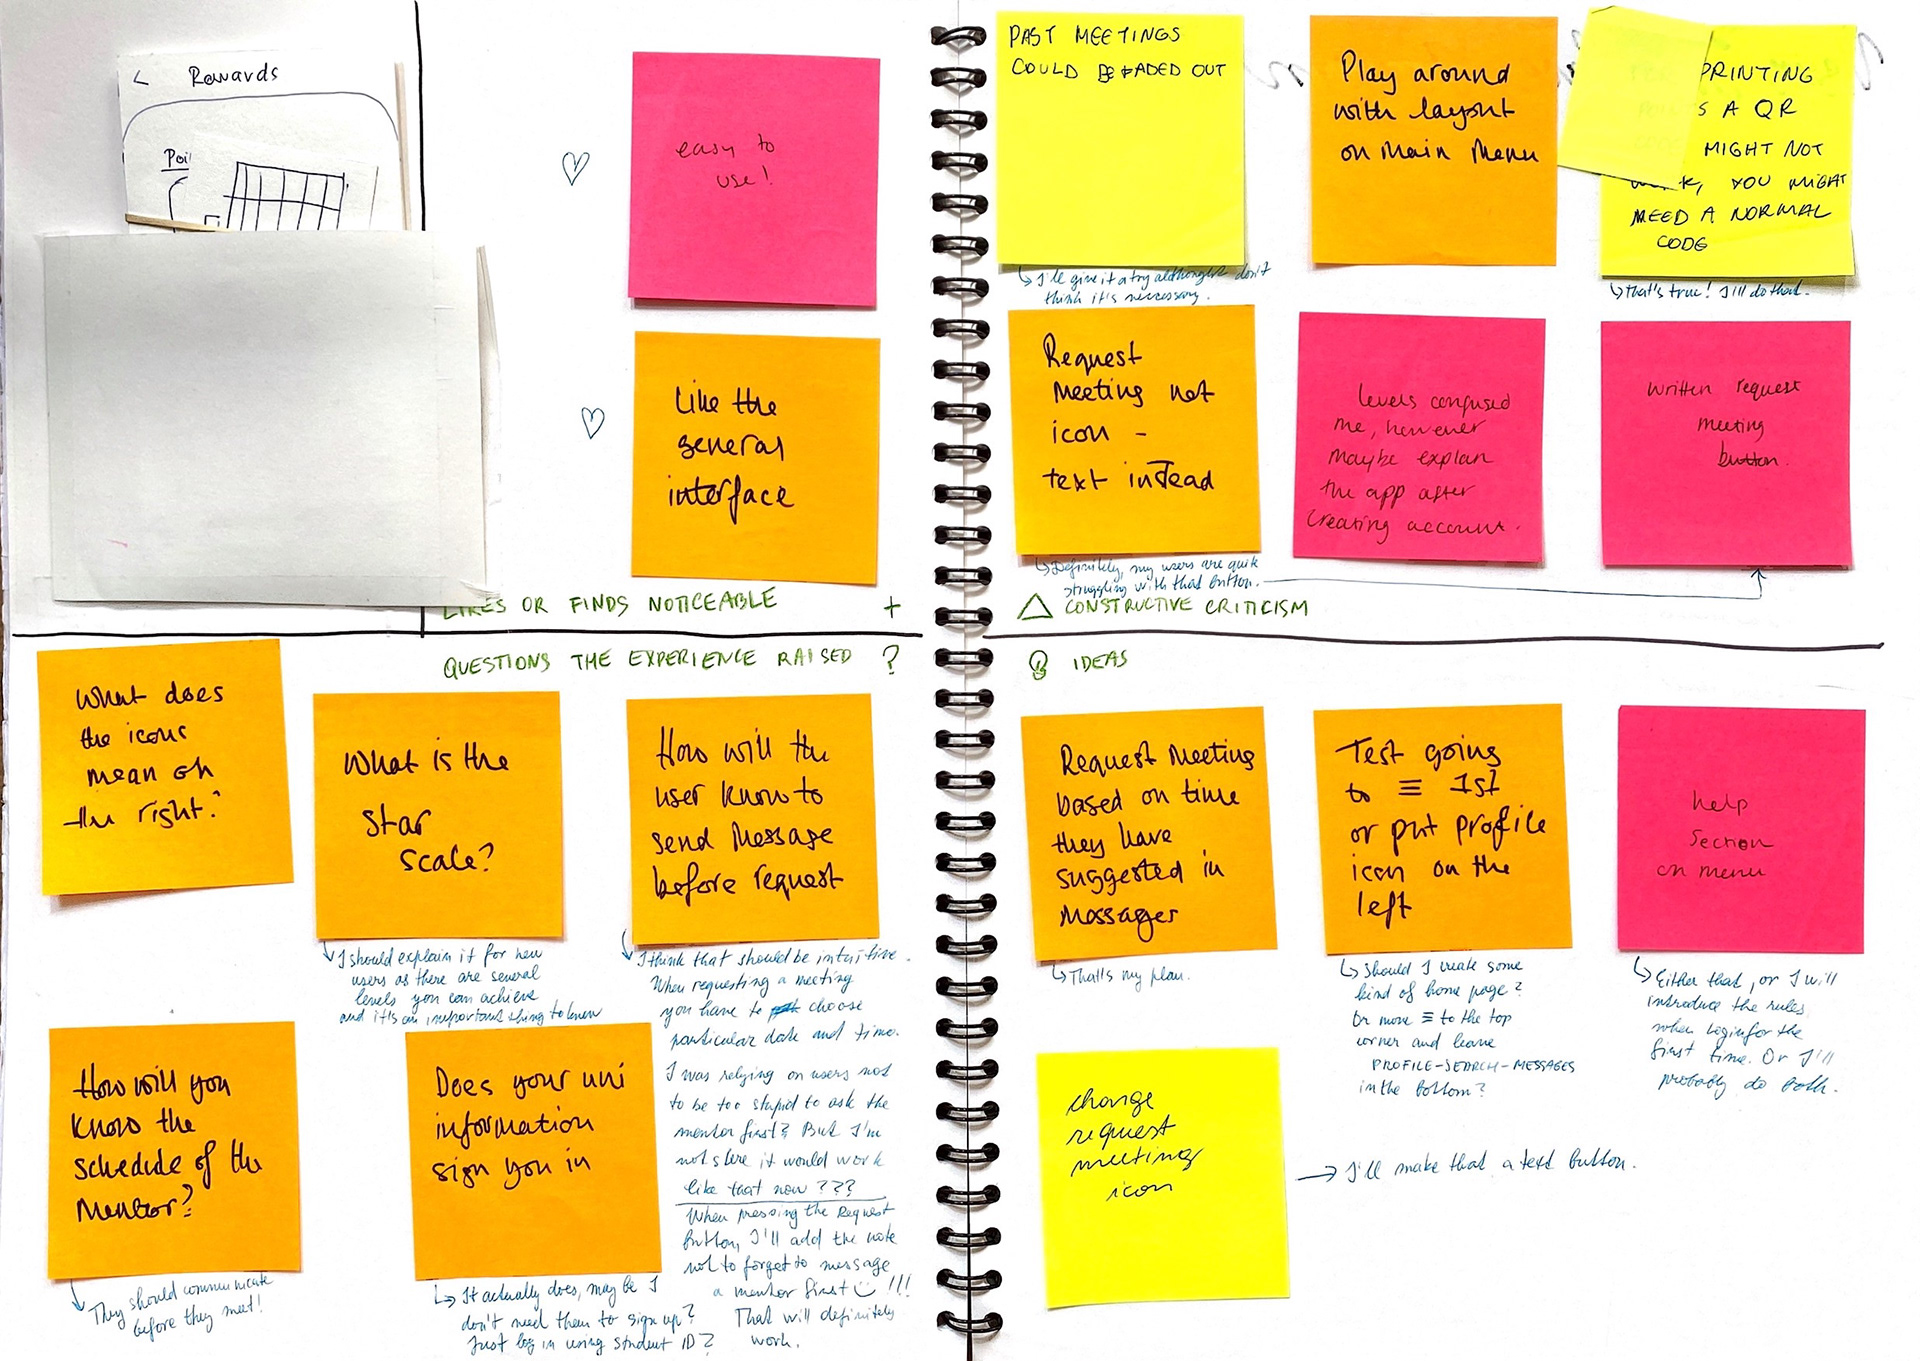 < Rewards
Poi
easy to
use!
Like the
general
interface
LIKES OR FINDS NOTICEABLE +
PAST MEETINGS
COULD BE FADED OUT
↳ I'll give it a try although I don't
think it's necessary.
Play around
with layout
on main menu
PRINTING
S A QR
MIGHT NOT
K, YOU MIGHT
NEED A NORMAL
CODE
↳ that's true! I'll do that.
Request
Meeting not
icon -
text instead
↳ Definitely, my users are quik
struggling with that button.
levels confused
me, however
maybe explan
the app after
creating account.
written request
meeting
button.
△ CONSTRUCTIVE CRITICISM
QUESTIONS THE EXPERIENCE RAISED ?
What does
the icons
mean on
the right?
What is the
star
scale?
↳ I should explain it for new
users as there are several
levels you can achieve
and it's an important thing to know
How will the
user know to
send Message
before request
↳ I think that should be intuitive.
When requesting a meeting
you have to choose
particular date and time.
I was relying on users not
to be too stupid to ask the
mentor first? But I'm
not sure it would work
like that now ???
When pressing the Request
button, I'll add the note
not to forget to message
a mentor first !!!
That will definitely
work.
How will you
know the
schedule of the
Mentor?
↳ They should communicate
before they meet!
Does your uni
information
sign you in
↳ It actually does, may be I
don't need them to sign up?
Just log in using student ID?
IDEAS
Request Meeting
based on time
they have
suggested in
Messager
↳ That's my plan.
Test going
to ≡ 1st
or put profile
icon on the
left
↳ Should I create some
kind of home page?
Or move ≡ to the top
corner and leave
PROFILE-SEARCH-MESSAGES
in the bottom?
help
section
on menu
↳ Either that, or I will
introduce the rules
when login for the
first time. Or I'll
probably do both.
change
request
meeting
icon
→ I'll make that a text button.